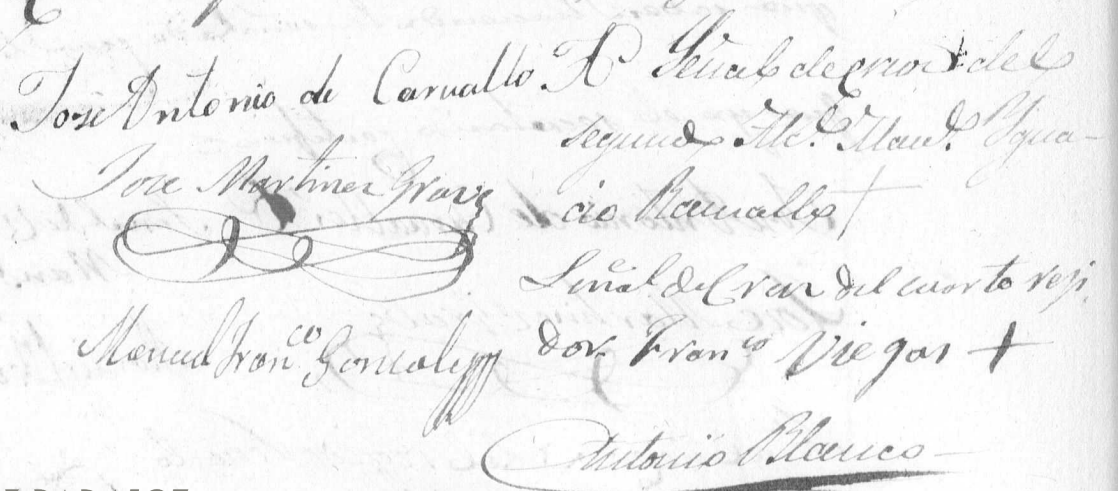 José Antonio de Carvallo
Jose Martinez Grave
Manuel Fran.co Gonzalez
Señal de cruz del
segundo Alc.e Man.l Ygna-
cio Ramallo +
Señal de Cruz del cuarto reji
dor Fran.co Viegas +
Antonio Blanco